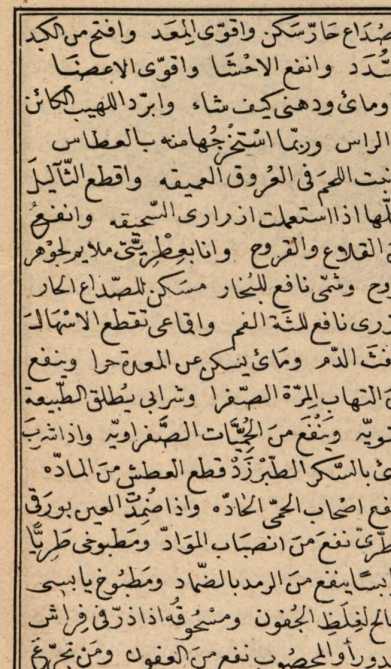 صُدَاع حَارّ سَكن واقوّى المِعَد وافتح من الكبد
سُّدَد وانفع الاحْشَا واقوّى الاعضَا
ومائ ودهنى كيف شاء وابرّد اللهيب الكائن
الراس وربّما اسْتخرجها منه بالعطاس
نبت اللحمَ فى العُروق العميقه واقطع الثّآليلَ
كلّها اذا استعملت ازرارى السّحيقه وانفعُ
القلاع والقروح وانا بعِطْريّتى ملايم لجوهر
روح وشمّى نافع للبُخار مسَكن للصّداع الحار
وزرى نافع للثة الفم واقماعى تقطع الاسْهال
نفثَ الدّم ومَائى يسكن عن المعدة حرا وينفع
التهاب المِرّة الصّفرا وشرابى يُطلق الطّبيعة
ويّه وينفع من الحُمّيَات الصَّفراويّه واذا شربَ
ئ بالسّكر الطّبْرَزَذْ قطع العطش من المادّه
نفع اصْحاب الحمّى الحادّه واذا ضُمِدَ العين بورقى
طرّىّ نفع من انصبَاب الموَادّ ومَطبوخى طَريًّا
يابسًا ينفع من الرمد بالضّماد ومَطبُوخ يابسى
صالح لغِلَظِ الجُفون ومسْحُوقُه اذا ذرّ فى فراش
أو المحصُوب نفع من العفون ومَن تجرّعَ